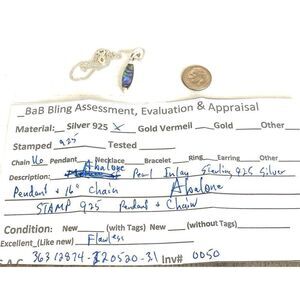 _BaB Bling Assessment, Evaluation & Appraisal
Material:__ Silver 925 X Gold Vermeil ___ Gold ___ Other
Stamped 925 Tested
Chain Pendant Necklace Bracelet __ Ring __ Earring __ Other
Abalone
Description: Pearl Inlay Sterling 925 Silver
Pendant & 16" Chain Abalone
STAMP 925 Pendant & Chain
Condition: New ___ (with Tags) New ___ (without Tags)
Excellent_(Like new) Flawless
Inv# 0050